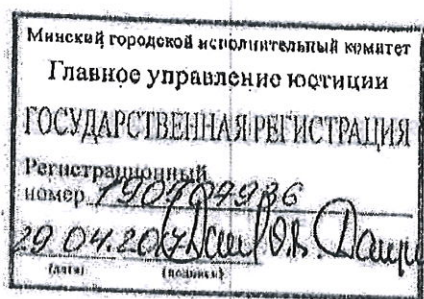 Минский городской исполнительный комитет
Главное управление юстиции
ГОСУДАРСТВЕННАЯ РЕГИСТРАЦИЯ
Регистрационный
номер
29.04.20
(дата) (подпись)